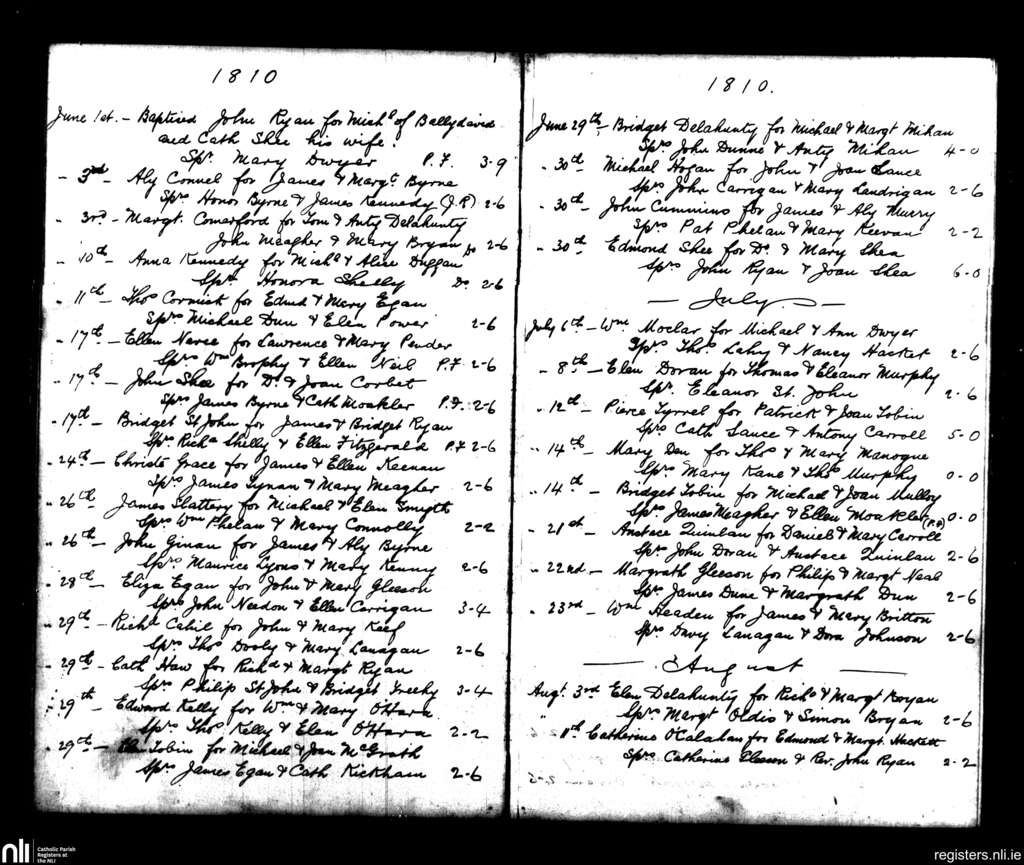 1810
June 1st. - Baptised John Ryan for Michl of Ballydavid
and Cath Shee his wife.
Spr. Mary Dwyer P.F. 3-9
.. 3rd - Aly Connel for James & Margt Byrne
Sprs Honor Byrne & James Kennedy (J.P.) 2-6
.. 3rd - Margt. Comarford for Tom & Anty Delahunty
John Meagher & Mary Bryan Do 2-6
.. 10th - Anna Kennedy for Michl & Alice Duggan
Spr. Honora Shelly Do 2-6
.. 11th - Thos Cormick for Edmd & Mary Egan
Sprs Michael Dun & Elen Power 2-6
.. 17th - Ellen Neree for Lawrence & Mary Pender
Sprs Wm Brophy & Ellen Neil P.F. 2-6
.. 17th - John Shee for Do & Joan Corbet
Sprs James Byrne & Cath Moakler P.F. 2-6
.. 17th - Bridget St John for James & Bridget Ryan
Sprs Richd Shelly & Ellen Fitzgerald P.F 2-6
.. 24th - Christr Grace for James & Ellen Keenan
Sprs James Lynam & Mary Meagher 2-6
.. 26th - James Slattery for Michael & Elen Smyth
Sprs Wm Phelan & Mary Connolly 2-2
.. 26th - John Ginan for James & Aly Byrne
Sprs Maurice Lyons & Mary Kenny 2-6
.. 28th - Eliza Egan for John & Mary Gleeson
Sprs John Needon & Ellen Corrigan 3-4
.. 29th - Richd Cahil for John & Mary Keef
Sprs Thos Dooly & Mary Lanagan 2-6
.. 29th - Cath Haw for Richd & Margt Ryan
Sprs Philip St John & Bridget Freehy 3-4
.. 29th - Edward Kelly for Wm & Mary O'Hara
Sprs Thos Kelly & Elen O'Hara 2-2
.. 29th - Tobin for Michael & Joan McGrath
Sprs James Egan & Cath Kickham 2-6
1810.
June 29th - Bridget Delahunty for Michael & Margt Mihan
Sprs John Dunne & Anty Mihan 4-0
.. 30th - Michael Hogan for John & Joan Lance
Sprs John Carrigan & Mary Landrigan 2-6
.. 30th - John Cummins for James & Aly Murry
Sprs Pat Phelan & Mary Keevan 2-2
.. 30th Edmond Shee for Do. & Mary Shea
Sprs John Ryan & Joan Shea 6-0
- July -
July 6th - Wm Moclar for Michael & Ann Dwyer
Sprs Thos. Lahy & Nancy Hacket 2-6
.. 8th - Elen Doran for Thomas & Eleanor Murphy
Spr. Eleanor St. John 2-6
.. 12th - Pierce Tyrrel for Patrick & Joan Tobin
Sprs Cath Lance & Antony Carroll 5-0
.. 14th - Mary Den for Thos & Mary Manogue
Sprs Mary Kane & Thos Murphy 0-0
.. 14th - Bridget Tobin for Michael & Joan Mulloy
Sprs James Meagher & Ellen Moakler (P.F) 0-0
.. 21st - Anstace Quinlan for Daniel & Mary Carroll
Sprs John Doran & Anstace Quinlan 2-6
.. 22nd - Margrath Gleeson for Philip & Margt Neal
Sprs James Dune & Margrath Dun 2-6
.. 23rd - Wm Headen for James & Mary Britton
Sprs Davy Lanagan & Dora Johnson 2-6
- August -
Augt. 3rd Elen Delahunty for Richd & Margt Royan
Sprs Margt Oldis & Simon Bryan 2-6
.. 11th. Catherine O'Calahan for Edmond & Margt. Hackett
Sprs Catherine Gleeson & Rev. John Ryan 2-2
nli Catholic Parish
Registers at
the NLI
registers.nli.ie